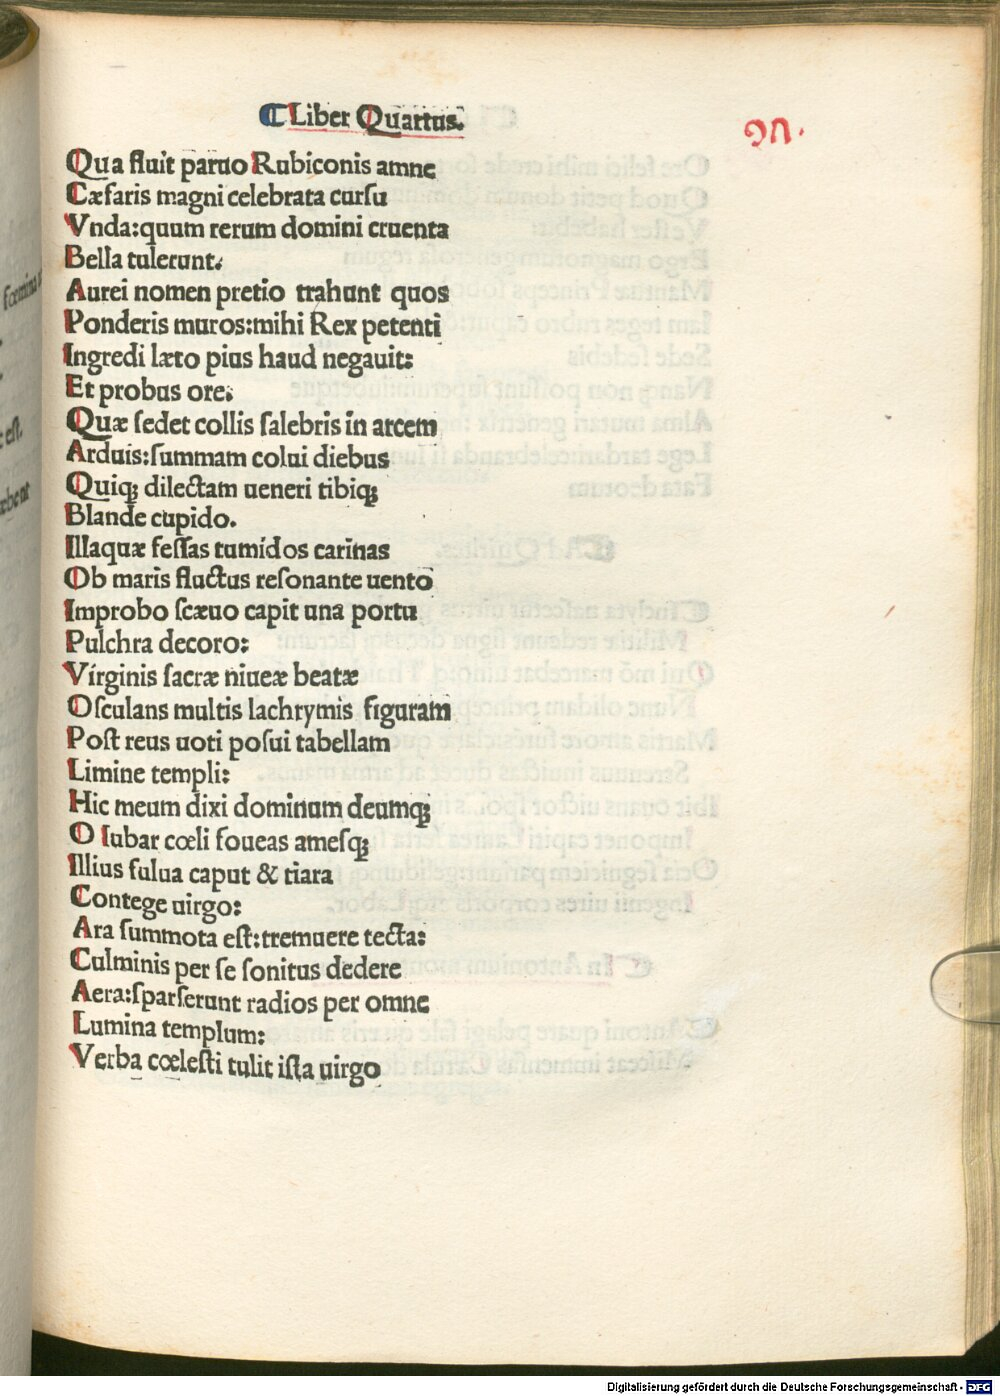 ⸿Liber Quartus.
Qua fluit paruo Rubiconis amne
Cæſaris magni celebrata curſu
Vnda:quum rerum domini cruenta
Bella tulerunt.
Aurei nomen pretio trahunt quos
Ponderis muros:mihi Rex petenti
Ingredi læto pius haud negauit:
Et probus ore.
Quæ ſedet collis ſalebris in arcem
Arduis:ſummam colui diebus
Quiqꝫ dilectam ueneri tibiqꝫ
Blande cupido.
Illaquæ feſſas tumidos carinas
Ob maris fluctus reſonante uento
Improbo ſcæuo capit una portu
Pulchra decoro:
Virginis ſacræ niueæ beatæ
Oſculans multis lachrymis figuram
Poſt reus uoti poſui tabellam
Limine templi:
Hic meum dixi dominum deumqꝫ
O Iubar cœli foueas ameſqꝫ
Illius fulua caput & tiara
Contege uirgo:
Ara ſummota eſt:tremuere tecta:
Culminis per ſe ſonitus dedere
Aera:ſparſerunt radios per omne
Lumina templum:
Verba cœleſti tulit iſta uirgo
Digitalisierung gefördert durch die Deutsche Forschungsgemeinschaft - DFG